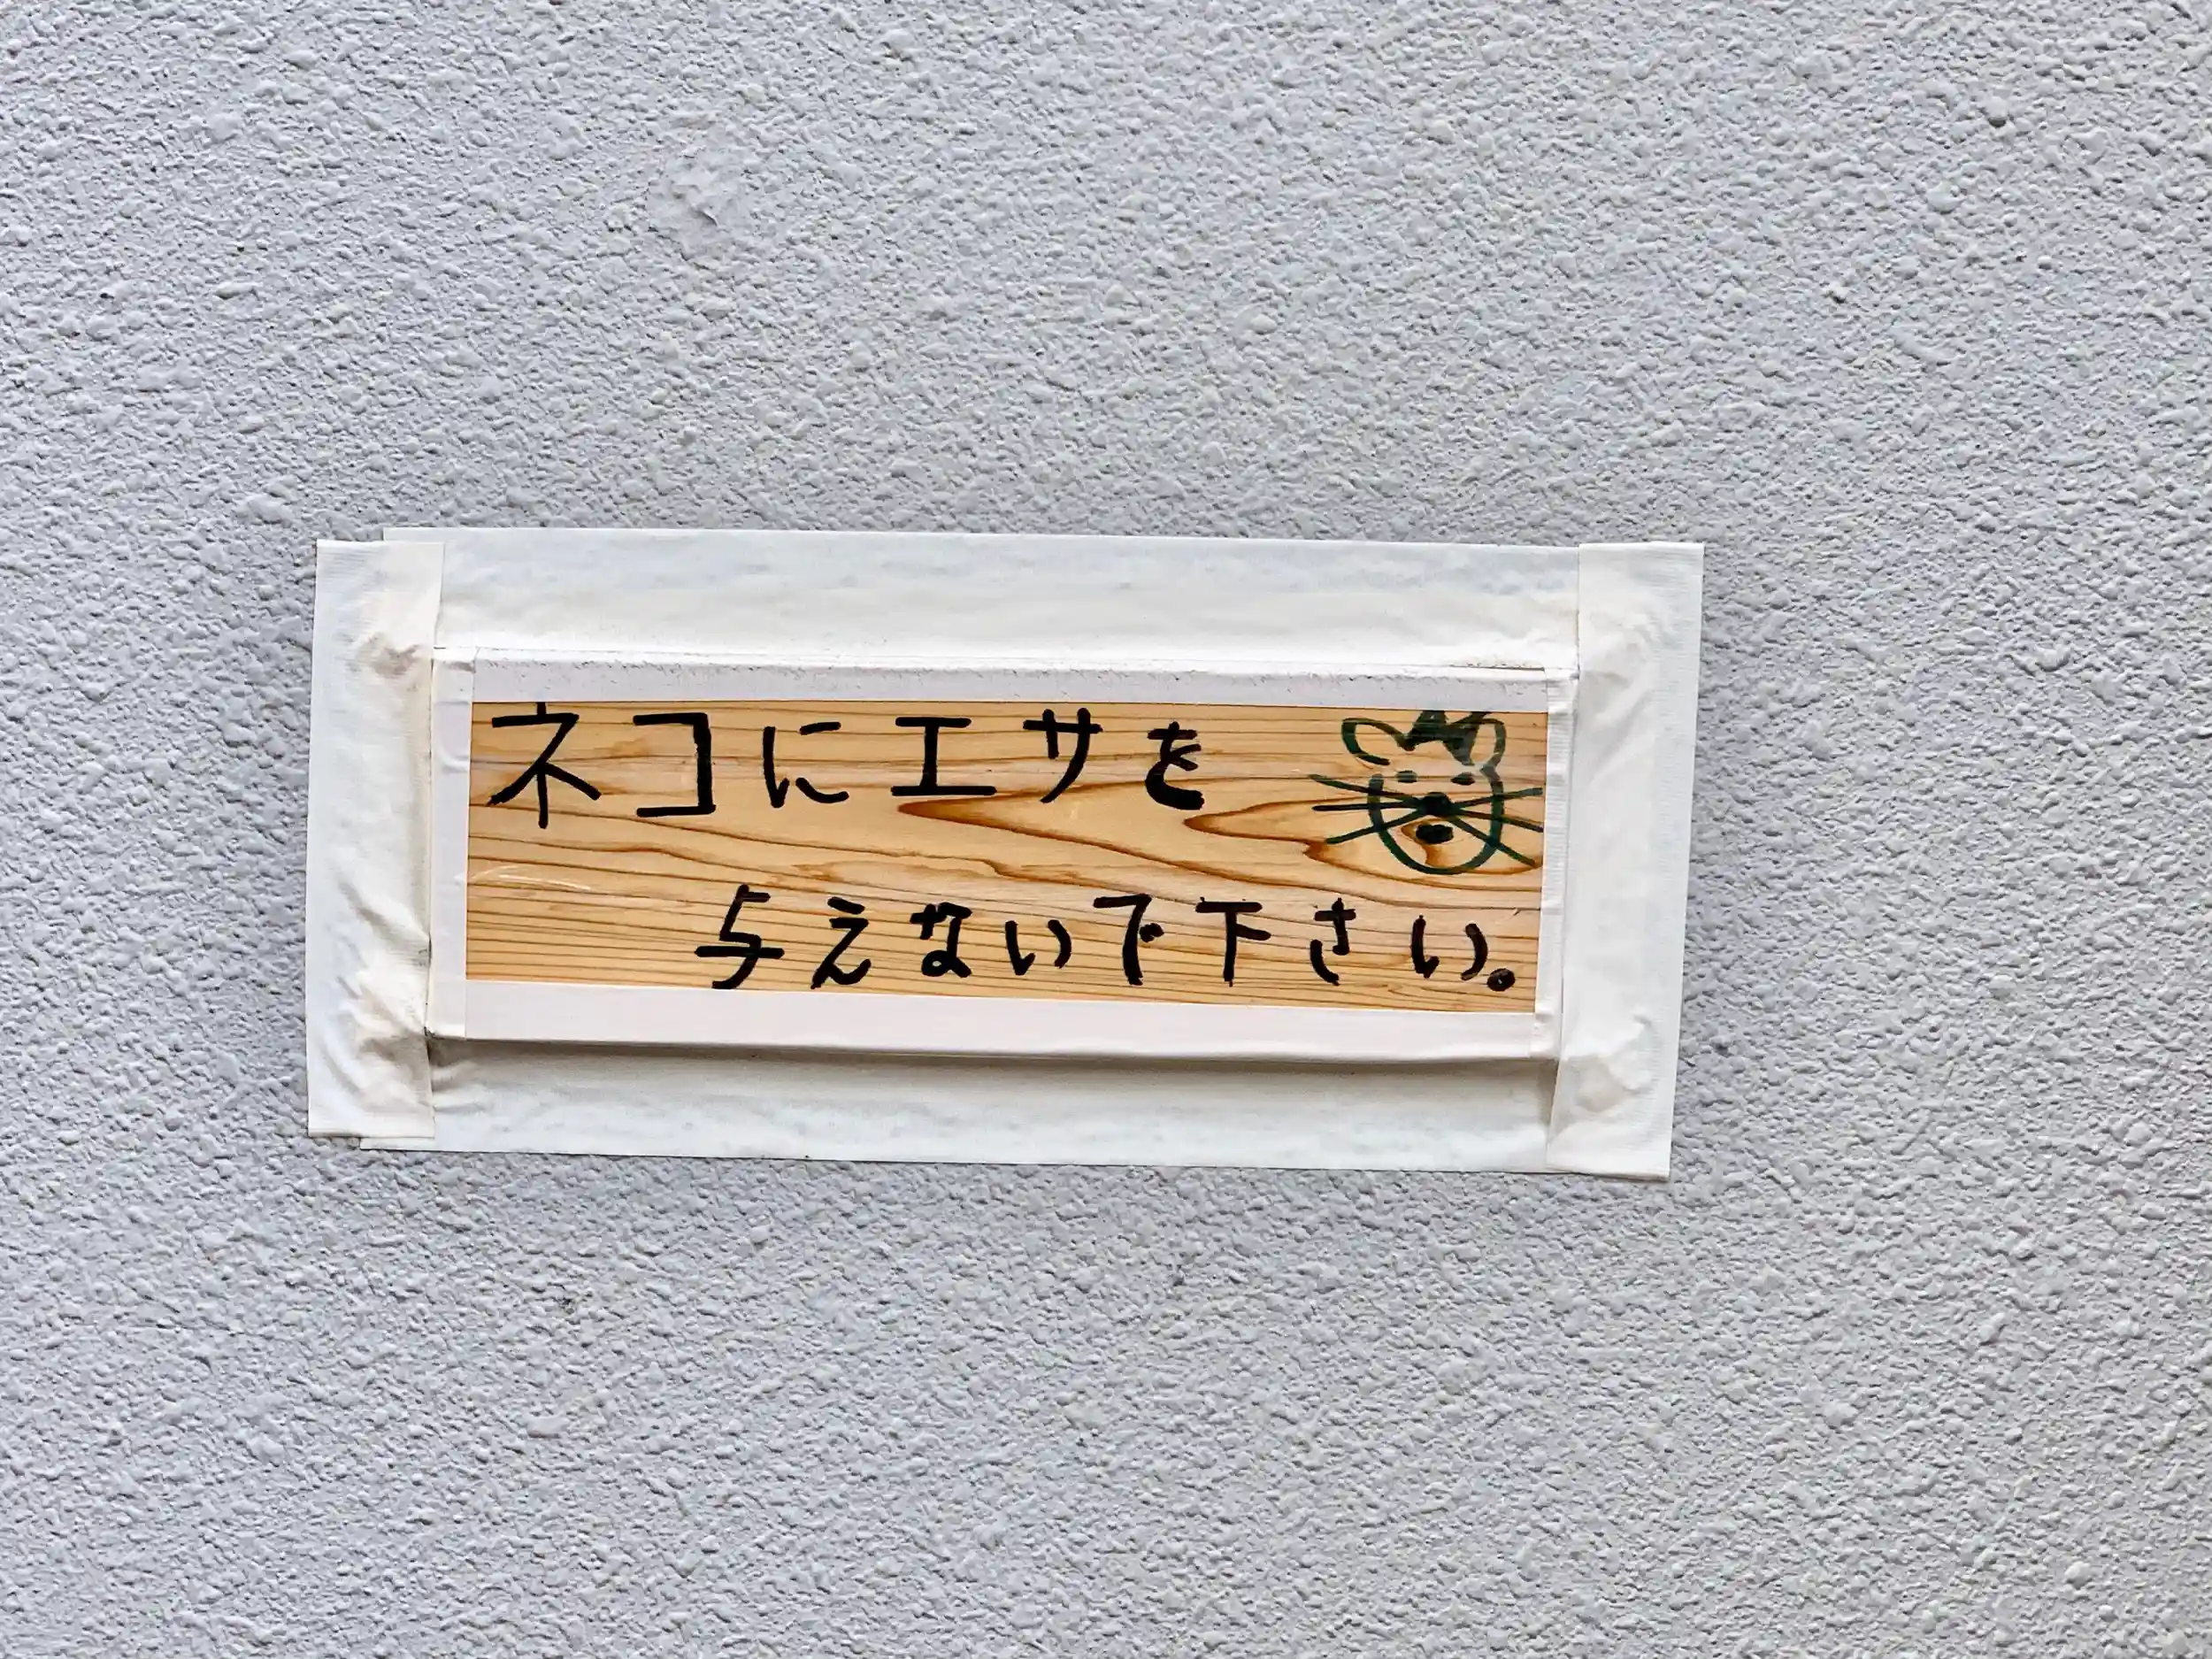 ネコにエサを
与えないで下さい。